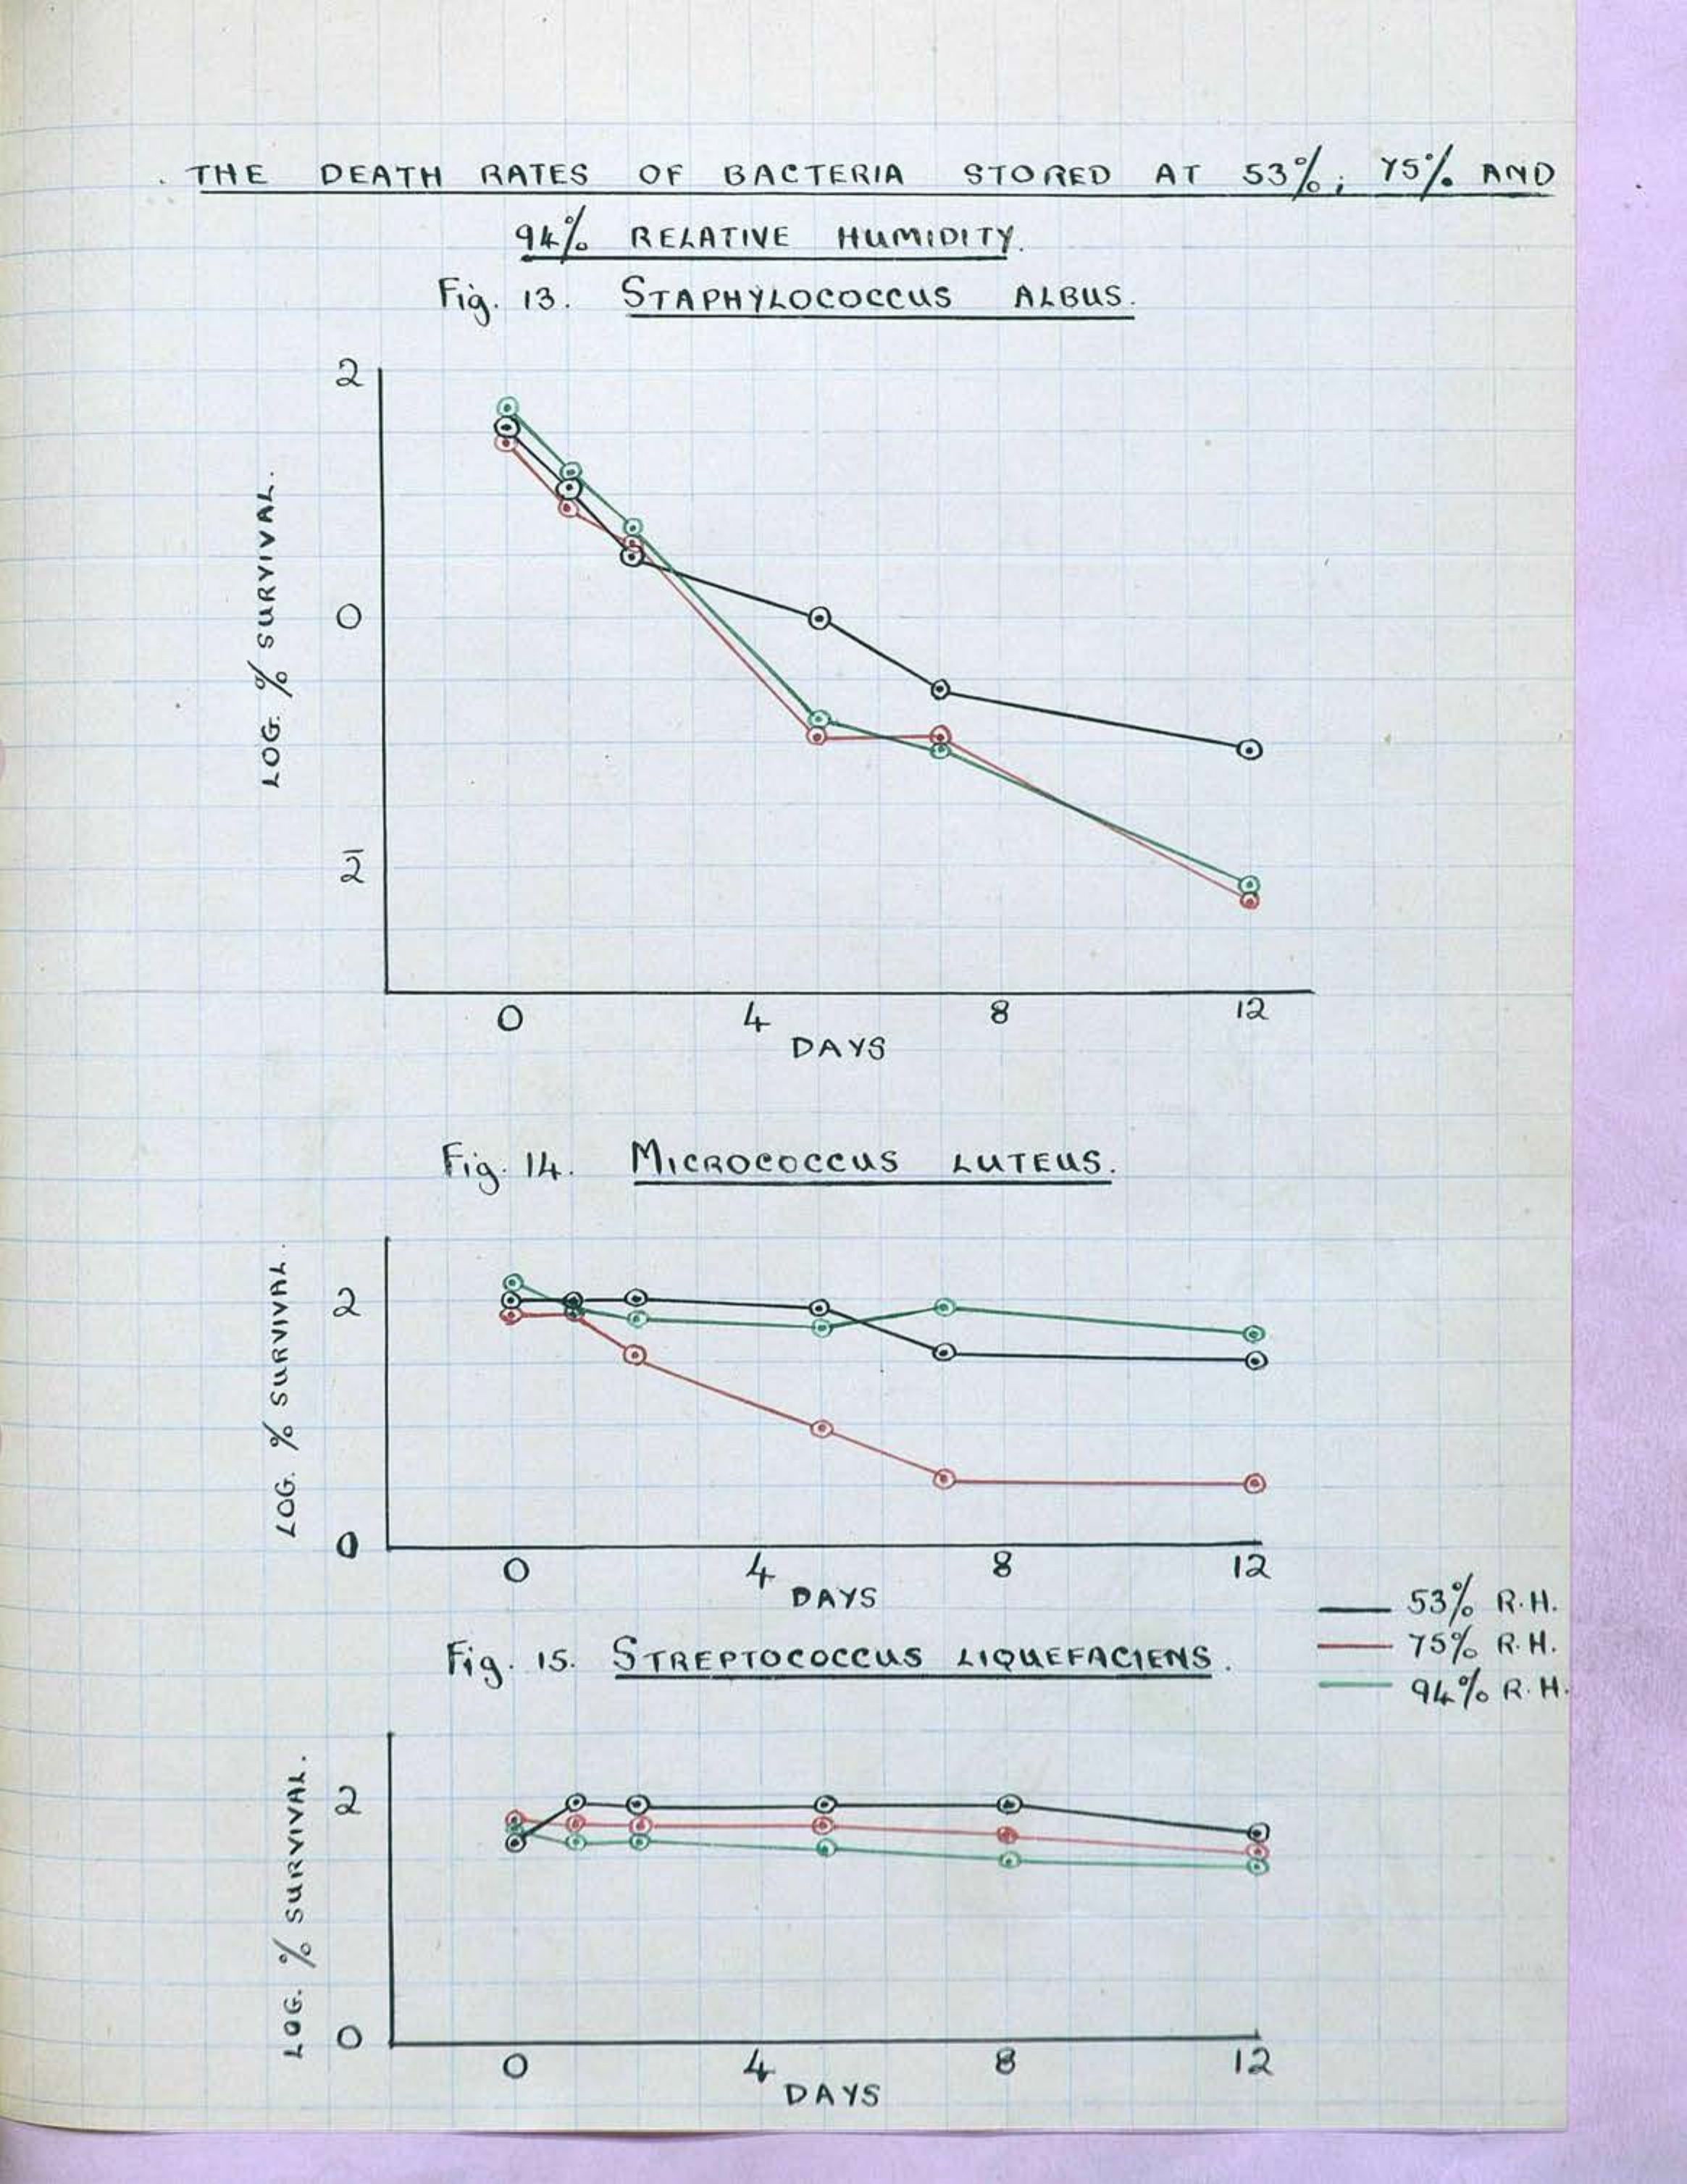 THE DEATH RATES OF BACTERIA STORED AT 53%; 75% AND
94% RELATIVE HUMIDITY.
Fig. 13. STAPHYLOCOCCUS ALBUS.
LOG. % SURVIVAL.
2
0
2̄
0 4 8 12
DAYS
Fig. 14. MICROCOCCUS LUTEUS.
LOG. % SURVIVAL.
2
0
0 4 8 12
DAYS
53% R.H.
75% R.H.
94% R.H.
Fig. 15. STREPTOCOCCUS LIQUEFACIENS.
LOG. % SURVIVAL.
2
0
0 4 8 12
DAYS